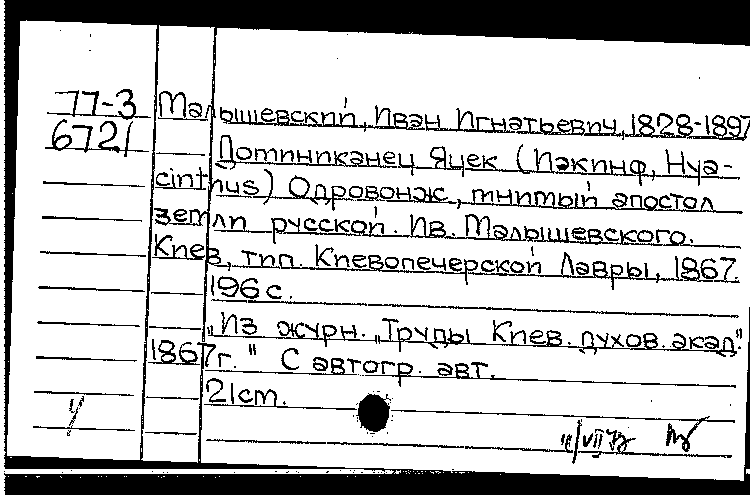 77-3 Малышевский, Иван Игнатьевич, 1828-1897
6721 Доминиканец Яцек (Иакинф, Hya-
cinthus) Одровонж, мнимый апостол
земли русской. Ив. Малышевского.
Киев, тип. Киевопечерской Лавры, 1867.
196 с.
„Из журн. „Труды Киев. духов. акад."
1867 г." С автогр. авт.
21 см.